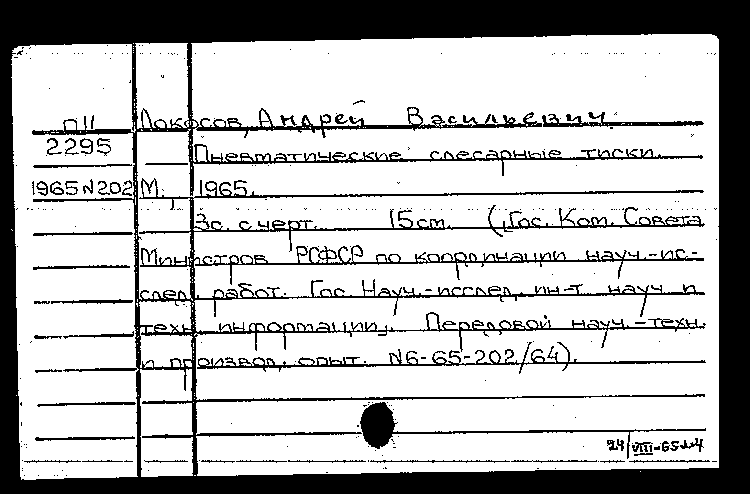 П11 Локосов, Андрей Васильевич.
2295 Пневматические слесарные тиски.
1965 N202 М., 1965.
3с. с черт. 15см. (Гос. Ком. Совета
Министров РСФСР по координации науч.-ис-
след. работ. Гос. Науч.-исслед. ин-т науч. и
техн. информации. Передовой науч.-техн.
и производ. опыт. N6-65-202/64).
24/VIII-65